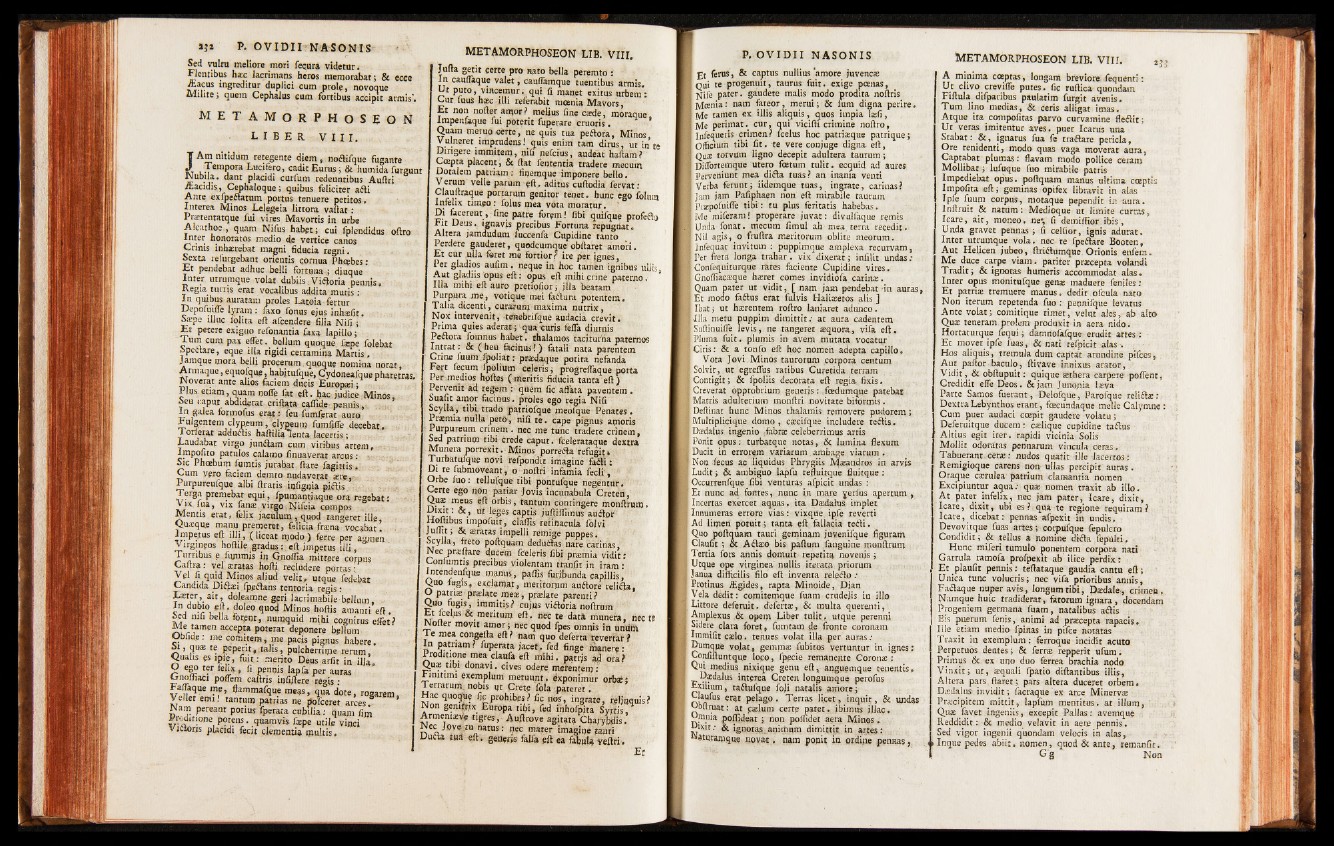 232 P. OVIDII NASONIS
Sed vultu meliore mori secura videtur.
Flentibus hæc lacrimans heros memorabat; & ecce
Æacus ingreditur duplici cum prole, novoque
Milite; quem Cephalus cum fortibus accipit armis.
METAMORPHOSEON
LIBER VIII.
JAm nitidum retegente diem, noctisque fugante
Tempora Lucifero, cadit Eurus; & humida surgunt
Nubila. dant placidi cursum redeuntibus Austri
Æacidis, Cephaloque: quibus feliciter acti
Ante exspectatum portus tenuere petitos.
Interea Minos Lelegeia littora vastat:
Prætentatque sui vires Mavortis in urbe
Alcathoe, quam Nisus habet; cui splendidus ostro
Inter honoratos medio de vertice canos
Crinis inhærebat magni fiducia regni.
Sexta resurgebant orientis cornua Phœbes:
Et pendebat adhuc belli fortuna; diuque
Inter utrumque volat dubiis Victoria pennis.
Regia turris erat vocalibus addita muris:
In quibus auratam proles Latoia fertur
Deposuisse lyram: saxo sonus ejus inhæsit.
Sæpe illuc solita est ascendere filia Nisi;
Et petere exiguo resonantia saxa lapillo;
Tum cum pax esset. bellum quoque sæpe solebat
Spectare, eque illa rigidi certamina Martis.
Jamque mora belli procerum quoque nomina norat,
Armaque, equosque, habitusque, Cydoneasque pharetras.
Noverat ante alios faciem ducis Europæi;
Plus etiam, quam nosse sat est. hac judice Minos,
Seu caput abdiderat cristata casside pennis,
In galea formosus erat: seu sumserat auro
Fulgentem clypeum, clypeum sumsisse decebat.
Torserat adductis hastilia lenta lacertis;
Laudabat virgo junctam cum viribus artem.
Imposito patulos calamo sinuaverat arcus:
Sic Phœbum sumtis jurabat stare sagittis.
Cum vero faciem demto nudaverat ære,
Purpureusque albi stratis insignia pictis
Terga premebat equi, spumantiaque ora regebat:
Vix sua, vix sanæ virgo Niseia compos
Mentis erat, felix jaculum, quod tangeret ille,
Quæque manu premeret, felicia fræna vocabat.
Impetus est illi, (liceat modo) ferre per agmen
Virgineos hostile gradus: est impetus illi,
Turribus e summis in Gnossia mittere corpus
Castra: vel æratas hosti recludere portas:
Vel si quid Minos aliud velit, utque sedebat
Candida Dictæi spectans tentoria regis:
Læter, ait, doleamne geri lacrimabile bellum,
In dubio est. doleo quod Minos hostis amanti est.
Sed nisi bella forent, numquid mihi cognitus esset?
Me tamen accepta poterat deponere bellum
Obside: me comitem, me pacis pignus habere.
Si, quæ te peperit, talis, pulcherrime rerum,
Qualis es ipse, fuit: merito Deus arsit in illa.
O ego ter felix, si pennis lapsa per auras
Gnossiaci possem castris insistere regis:
Fassaque me, flammasque meas, qua dote, rogarem,
Vellet emi! tantum patrias ne posceret arces.
Nam pereant potius sperata cubilia: quam sim
Proditione potens. quamvis sæpe utile vinci
Victoris placidi fecit clementia multis.
METAMORPHOSEON LIB. VIII.
Justa gerit certe pro nato bella peremto:
In caussaque valet, caussamque tuentibus armis.
Ut puto, vincemur. qui si manet exitus urbem:
Cur suus hæc illi reserabit mœnia Mavors,
Et non noster amor? melius sine cæde, moraque,
Impensaque sui poterit superare cruoris.
Quam metuo certe, ne quis tua pectora, Minos,
Vulneret imprudens! quis enim tam dirus, ut in te
Dirigere immitem, nisi nescius, audeat hastam?
Cœpta placent, & stat sententia tradere mecum
Dotalem patriam: finemque imponere bello.
Verum velle parum est. aditus custodia servat:
Claustraque portarum genitor tenet. hunc ego solum
Infelix timeo: solus mea vota moratur.
Di facerent, sine patre forem! sibi quisque profecto
Fit Deus. ignavis precibus Fortuna repugnat.
Altera jamdudum succensa Cupidine tanto
Perdere gauderet, quodcumque obstaret amori.
Et cur ulla foret me fortior? ire per ignes,
Per gladios ausim. neque in hoc tamen ignibus ullis,
Aut gladiis opus est: opus est mihi crine paterno.
Illa mihi est auro pretiosior; illa beatam
Purpura me, votique mei factura potentem.
Talia dicenti, curarum maxima nutrix,
Nox intervenit, tenebrisque audacia crevit.
Prima quies aderat; qua curis fessa diurnis
Pectora somnus habet. thalamos taciturna paternos
Intrat: & (heu facinus!) fatali nata parentem
Crine suum spoliat: prædaque potita nefanda
Fert secum spolium celeris; progressaque porta
Per medios hostes (meritis fiducia tanta est)
Pervenit ad regem: quem sic affata paventem.
Suasit amor facinus. proles ego regia Nisi
Scylla, tibi trado patriosque meosque Penates.
Præmia nulla peto, nisi te. cape pignus amoris
Purpureum crinem. nec me tunc tradere crinem,
Sed patrium tibi crede caput. scelerataque dextra
Munera porrexit. Minos porrecta refugit,
Turbatusque novi respondit imagine facti:
Di te submoveant, o nostri infamia secli,
Orbe suo: tellusque tibi pontusque negentur.
Certe ego non patiar Jovis incunabula Creten,
Quæ meus est orbis, tantum contingere monstrum.
Dixit: &, ut leges captis justissimus auctor
Hostibus imposuit, classis retinacula solvi
Jussit; & æratas impelli remige puppes.
Scylla, freto postquam deductas nare carinas,
Nec præstare ducem sceleris sibi præmia vidit:
Consumtis precibus violentam transit in iram:
Intendensque manus, passis furibunda capillis,
Quo fugis, exclamat, meritorum auctore relicta,
O patriæ prælate meæ, prælate parenti?
Quo fugis, immitis? cujus victoria nostrum
Et scelus & meritum est. nec te data munera, nec te
Noster movit amor; nec quod spes omnis in unum
Te mea congesta est? nam quo deserta revertar?
In patriam? superata jacet. sed finge manere:
Proditione mea clausa est mihi. patris ad ora?
Quæ tibi donavi. cives odere merentem:
Finitimi exemplum metuunt. exponimur orbæ;
Terrarum nobis ut Crete sola pateret.
Hac quoque sic prohibes? sic nos, ingrate, relinquis?
Non genitrix Europa tibi, sed inhospita Syrtis,
Armeniæve tigres, Austrove agitata Charybdis.
Nec Jove tu natus: nec mater imagine tauri
Ducta tua est. generis falsa est ea fabula vestri.
Et
P. OVIDII NASONIS
Et ferus, & captus nullius amore juvencæ
Qui te progenuit, taurus fuit. exige pœnas,
Nise pater. gaudete malis modo prodita nostris
Mœnia: nam fateor, merui; & sum digna perire.
Me tamen ex illis aliquis, quos impia læsi,
Me perimat. cur, qui vicisti crimine nostro,
Insequeris crimen? scelus hoc patriæque patrique;
Officium tibi sit. te vere conjuge digna est,
Quæ torvum ligno decepit adultera taurum;
Dissortemque utero fœtum tulit. ecquid ad aures
Perveniunt mea dicta tuas? an inania venti
Verba ferunt; iidemque tuas, ingrate, carinas?
Jam jam Pasiphaen non est mirabile taurum
Præposuisse tibi: tu plus feritatis habebas.
Me miseram! properare juvat: divulsaque remis
Unda sonat. mecum simul ah mea terra recedit.
Nil agis, o frustra meritorum oblite meorum.
Insequar invitum: puppimque amplexa recurvam,
Per freta longa trahar. vix dixerat; insilit undas:
Consequiturque rates faciente Cupidine vires.
Gnossiacæque hæret comes invidiosa carinæ.
Quam pater ut vidit, [ nam jam pendebat in auras,
Et modo factus erat fulvis Haliæetos alis ]
Ibat; ut hærentem rostro laniaret adunco.
Illa metu puppim dimittit: at aura cadentem
Sustinuisse levis, ne tangeret æquora, visa est.
Pluma fuit. plumis in avem mutata vocatur
Ciris: & a tonso est hoc nomen adepta capillo.
Vota Jovi Minos taurorum corpora centum
Solvit, ut egressus ratibus Curetida terram
Contigit; & spoliis decorata est regia fixis.
Creverat opprobrium generis: fœdumque patebat
Matris adulterium monstri novitate biformis.
Destinat hunc Minos thalamis removere pudorem;
Multiplicique domo, cæcisque includere tectis.
Dædalus ingenio fabræ celeberrimus artis
Ponit opus: turbatque notas, & lumina flexum
Ducit in errorem variarum ambage viarum.
Non secus ac liquidus Phrygiis Mæandros in arvis
Ludit; & ambiguo lapsu refluitque fluitque:
Occurrensque sibi venturas aspicit undas:
Et nunc ad fontes, nunc in mare versus apertum,
Incertas exercet aquas. ita Dædalus implet
Innumeras errore vias: vixque ipse reverti
Ad limen potuit; tanta est fallacia tecti.
Quo postquam tauri geminam juvenisque figuram
Clausit; & Actæo bis pastum sanguine monstrum
Tertia sors annis domuit repetita novenis;
Utque ope virginea nullis iterata priorum
Janua difficilis filo est inventa relecto:
Protinus Ægides, rapta Minoide, Dian
Vela dedit: comitemque suam crudelis in illo
Littore deseruit. desertæ, & multa querenti,
Amplexus & opem Liber tulit, utque perenni
Sidere clara foret, sumtam de fronte coronam
Immisit cælo. tenues volat illa per auras:
Dumque volat, gemmæ subitos vertuntur in ignes:
Consistuntque loco, specie remanente Coronæ:
Qui medius nixique genu est, anguemque tenentis.
Dædalus interea Creten longumque perosus
Exilium, tactusque soli natalis amore;
Clausus erat pelago. Terras licet, inquit, & undas
Obstruat: at cælum certe patet. ibimus illac.
Omnia possideat; non possidet aera Minos.
Dixit: & ignotas animum dimittit in artes:
Naturamque novat. nam ponit in ordine pennas,
METAMORPHOSEON LIB. VIII. 233
A minima cœptas, longam breviore sequenti:
Ut clivo crevisse putes. sic rustica quondam
Fistula disparibus paulatim surgit avenis.
Tum lino medias, & ceris alligat imas.
Atque ita compositas parvo curvamine flectit;
Ut veras imitentur aves. puer Icarus una
Stabat: &, ignarus sua se tractare pericla,
Ore renidenti, modo quas vaga moverat aura,
Captabat plumas: flavam modo pollice ceram
Mollibat; lusuque suo mirabile patris
Impediebat opus. postquam manus ultima cœptis
Imposita est; geminas opifex libravit in alas
Ipse suum corpus, motaque pependit in aura.
Instruit & natum: Medioque ut limite curras,
Icare, ait, moneo. ne, si demissior ibis,
Unda gravet pennas; si celsior, ignis adurat.
Inter utrumque vola. nec te spectare Booten,
Aut Helicen jubeo, strictumque Orionis ensem.
Me duce carpe viam. pariter præcepta volandi
Tradit; & ignotas humeris accommodat alas.
Inter opus monitusque genæ maduere seniles:
Et patriæ tremuere manus. dedit oscula nato
Non iterum repetenda suo: pennisque levatus
Ante volat; comitique timet, velut ales, ab alto
Quæ teneram prolem produxit in aera nido.
Hortaturque sequi; damnosasque erudit artes:
Et movet ipse suas, & nati respicit alas.
Hos aliquis, tremula dum captat arundine pisces,
Aut pastor baculo, stivave innixus arator,
Vidit, & obstupuit: quique æthera carpere possent,
Credidit esse Deos. & jam Junonia læva
Parte Samos fuerant, Delosque, Parosque relictæ:
Dextra Lebynthos erant, fœcundaque melle Calymne:
Cum puer audaci cœpit gaudere volatu;
Deseruitque ducem: cælique cupidine tactus
Altius egit iter. rapidi vicinia Solis
Mollit odoratas pennarum vincula ceras.
Tabuerant ceræ: nudos quatit ille lacertos:
Remigioque carens non ullas percipit auras.
Oraque cærulea patrium clamantia nomen
Excipiuntur aqua: quæ nomen traxit ab illo.
At pater infelix, nec jam pater, Icare, dixit,
Icare, dixit, ubi es? qua te regione requiram?
Icare, dicebat: pennas aspexit in undis.
Devovitque suas artes; corpusque sepulcro
Condidit; & tellus a nomine dicta sepulti.
Hunc miseri tumulo ponentem corpora nati
Garrula ramosa prospexit ab ilice perdix:
Et plausit pennis: testataque gaudia cantu est;
Unica tunc volucris; nec visa prioribus annis,
Factaque nuper avis, longum tibi, Dædale, crimen.
Namque huic tradiderat, fatorum ignara, docendam
Progeniem germana suam, natalibus actis
Bis puerum senis, animi ad præcepta rapacis.
Ille etiam medio spinas in pisce notatas
Traxit in exemplum: ferroque incidit acuto
Perpetuos dentes; & serræ repperit usum.
Primus & ex uno duo ferrea brachia nodo
Vinxit; ut, æquali spatio distantibus illis,
Altera pars staret; pars altera duceret orbem.
Dædalus invidit; sacraque ex arce Minervæ
Præcipitem mittit, lapsum mentitus. at illum,
Quæ favet ingeniis, excepit Pallas: avemque
Reddidit: & medio velavit in aere pennis.
Sed vigor ingenii quondam velocis in alas,
Inque pedes abiit. nomen, quod & ante, remansit.
Gg Non